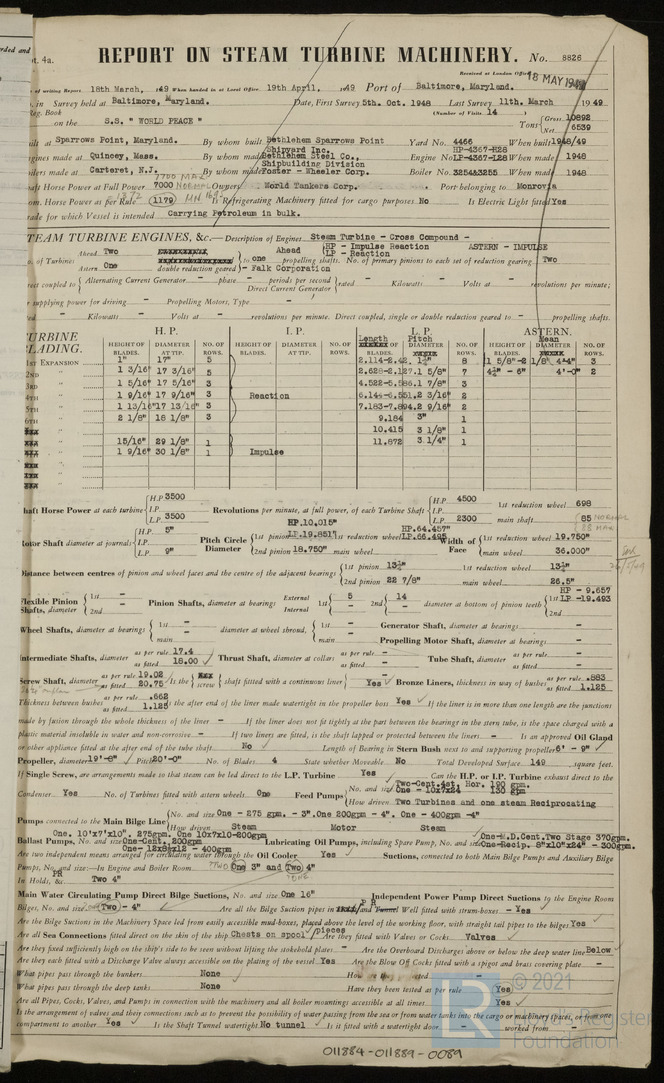 pt. 4a.
REPORT ON STEAM TURBINE MACHINERY. No. 8826
Received at London Office 18 MAY 19
of writing Report 18th March, 1949 When handed in at Local Office 19th April, 1949 Port of Baltimore, Maryland.
in Survey held at Baltimore, Maryland. Date, First Survey 5th. Oct. 1948 Last Survey 11th. March 1949
Reg. Book (Number of Visits 14)
on the S.S. "WORLD PEACE" Tons Gross 10892 Net 6539
Built at Sparrows Point, Maryland. By whom built Bethlehem Sparrows Point Shipyard Inc. Yard No. 4466 When built 1948/49
Engines made at Quincey, Mass. By whom made Bethlehem Steel Co., Shipbuilding Division Engine No. HP-4367-H28 LP-4367-L28 When made 1948
Boilers made at Carteret, N.J. By whom made Foster - Wheeler Corp. Boiler No. 3254&3255 When made 1948
Shaft Horse Power at Full Power 7700 MAX 7000 NORMAL Owners World Tankers Corp. Port belonging to Monrovia
Nom. Horse Power as per Rule 1179 Is Refrigerating Machinery fitted for cargo purposes No Is Electric Light fitted Yes
Trade for which Vessel is intended Carrying Petroleum in bulk.
STEAM TURBINE ENGINES, &c.—Description of Engines Steam Turbine - Cross Compound -
Ahead Two Ahead HP - Impulse Reaction LP - Reaction ASTERN - IMPULSE
No. of Turbines Astern One double reduction geared to one propelling shafts. No. of primary pinions to each set of reduction gearing Two
- Falk Corporation
direct coupled to Alternating Current Generator - phase - periods per second Direct Current Generator rated - Kilowatts - Volts at - revolutions per minute;
for supplying power for driving - Propelling Motors, Type -
rated - Kilowatts - Volts at - revolutions per minute. Direct coupled, single or double reduction geared to - propelling shafts.
TURBINE BLADING. H. P. I. P. L. P. ASTERN.
HEIGHT OF BLADES. DIAMETER AT TIP. NO. OF ROWS. HEIGHT OF BLADES. DIAMETER AT TIP. NO. OF ROWS. Length BLADES. Pitch DIAMETER NO. OF ROWS. HEIGHT OF BLADES. Mean DIAMETER NO. OF ROWS.
1ST EXPANSION 1" 17" 5 2.114-2.42 8 1 5/8"-2 1/8" 4'-4" 3
2ND " 1 3/16" 17 3/16" 5 2.628-2.127 1 5/8" 7 4½" - 6" 4'-0" 2
3RD " 1 5/16" 17 5/16" 3 4.522-5.586 1 7/8" 3
4TH " 1 9/16" 17 9/16" 3 Reaction 6.144-6.551 2 3/16" 2
5TH " 1 13/16" 17 13/16" 3 7.183-7.894 2 9/16" 2
6TH " 2 1/8" 18 1/8" 3 9.184 3" 1
10.415 3 1/8" 1
15/16" 29 1/8" 1 11.872 3 1/4" 1
1 9/16" 30 1/8" 1 Impulse
Shaft Horse Power at each turbine H.P. 3500 I.P. L.P. 3500 Revolutions per minute, at full power, of each Turbine Shaft H.P. 4500 I.P. L.P. 2300 1st reduction wheel 698 main shaft 85 NORMAL 88 MAX
Rotor Shaft diameter at journals H.P. 5" I.P. L.P. 9" Pitch Circle Diameter 1st pinion HP.10.015" LP.19.851" 1st reduction wheel HP.64.457" LP.66.495 2nd pinion 18.750" main wheel Width of Face 1st reduction wheel 19.750" main wheel 36.000"
Distance between centres of pinion and wheel faces and the centre of the adjacent bearings 1st pinion 13½" 2nd pinion 22 7/8" 1st reduction wheel 13½" main wheel 26.5"
Flexible Pinion Shafts, diameter 1st - 2nd - Pinion Shafts, diameter at bearings External Internal 1st 5 - 2nd 14 - diameter at bottom of pinion teeth 1st HP - 9.657 LP -19.493 2nd
Wheel Shafts, diameter at bearings 1st - main - diameter at wheel shroud, 1st - main - Generator Shaft, diameter at bearings -
Propelling Motor Shaft, diameter at bearings -
Intermediate Shafts, diameter as per rule 17.4 as fitted 18.00 Thrust Shaft, diameter at collars as per rule - as fitted - Tube Shaft, diameter as per rule - as fitted -
Screw Shaft, diameter as per rule 19.02 as fitted 20.75 Is the screw shaft fitted with a continuous liner Yes Bronze Liners, thickness in way of bushes as per rule .883 as fitted 1.125
Thickness between bushes as per rule .662 as fitted 1.125 Is the after end of the liner made watertight in the propeller boss Yes If the liner is in more than one length are the junctions
made by fusion through the whole thickness of the liner - If the liner does not fit tightly at the part between the bearings in the stern tube, is the space charged with a
plastic material insoluble in water and non-corrosive - If two liners are fitted, is the shaft lapped or protected between the liners - Is an approved Oil Gland
or other appliance fitted at the after end of the tube shaft No Length of Bearing in Stern Bush next to and supporting propeller 6' - 9"
Propeller, diameter 19'-8" Pitch 20'-0" No. of Blades 4 State whether Moveable No Total Developed Surface 149 square feet.
If Single Screw, are arrangements made so that steam can be led direct to the L.P. Turbine Yes Can the H.P. or I.P. Turbine exhaust direct to the
Condenser Yes No. of Turbines fitted with astern wheels One Feed Pumps No. and size Two-Cent.4st. Hor. 190 gpm. One - 10x7x24 130 gpm How driven Two Turbines and one steam Reciprocating
Pumps connected to the Main Bilge Line No. and size One - 275 gpm. - 3". One 200gpm - 4". One - 400gpm -4" How driven Steam Motor Steam
One. 10'x7'x10". 275gpm. One 10x7x10-200gpm
Ballast Pumps, No. and size One-Cent. 200gpm One- 12x8½x12 - 400gpm Lubricating Oil Pumps, including Spare Pump, No. and size One-M.D.Cent.Two Stage 370gpm. One-Recip. 8"x10"x24" - 300gpm.
Are two independent means arranged for circulating water through the Oil Cooler Yes Suctions, connected to both Main Bilge Pumps and Auxiliary Bilge
Pumps, No. and size:—In Engine and Boiler Room TWO One 3" and Two 4" ONE
PR
In Holds, &c. Two 4"
Main Water Circulating Pump Direct Bilge Suctions, No. and size One 16" Independent Power Pump Direct Suctions to the Engine Room
Bilges, No. and size Two - 4" Are all the Bilge Suction pipes in P R and Tunnel Well fitted with strum-boxes - Yes
Are the Bilge Suctions in the Machinery Space led from easily accessible mud-boxes, placed above the level of the working floor, with straight tail pipes to the bilges Yes
Are all Sea Connections fitted direct on the skin of the ship Chests on spool pieces Are they fitted with Valves or Cocks Valves
Are they fixed sufficiently high on the ship's side to be seen without lifting the stokehold plates - Are the Overboard Discharges above or below the deep water line Below
Are they each fitted with a Discharge Valve always accessible on the plating of the vessel Yes Are the Blow Off Cocks fitted with a spigot and brass covering plate -
What pipes pass through the bunkers None
What pipes pass through the deep tanks None Have they been tested as per rule Yes
Are all Pipes, Cocks, Valves, and Pumps in connection with the machinery and all boiler mountings accessible at all times Yes
Is the arrangement of valves and their connections such as to prevent the possibility of water passing from the sea or from water tanks into the cargo or machinery spaces, or from one
compartment to another Yes Is the Shaft Tunnel watertight No tunnel Is it fitted with a watertight door - worked from -
© 2021
Lloyd's Register
Foundation
011884-011889-0089